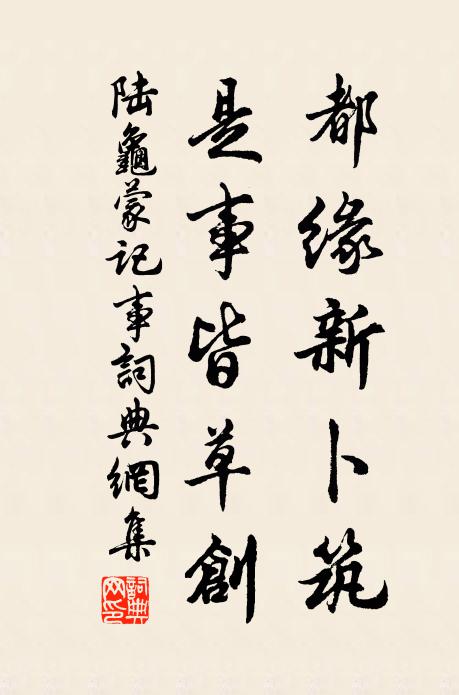 都緣新卜筑
是事皆草創
陸龜蒙記事詞典網集
詞典
网印